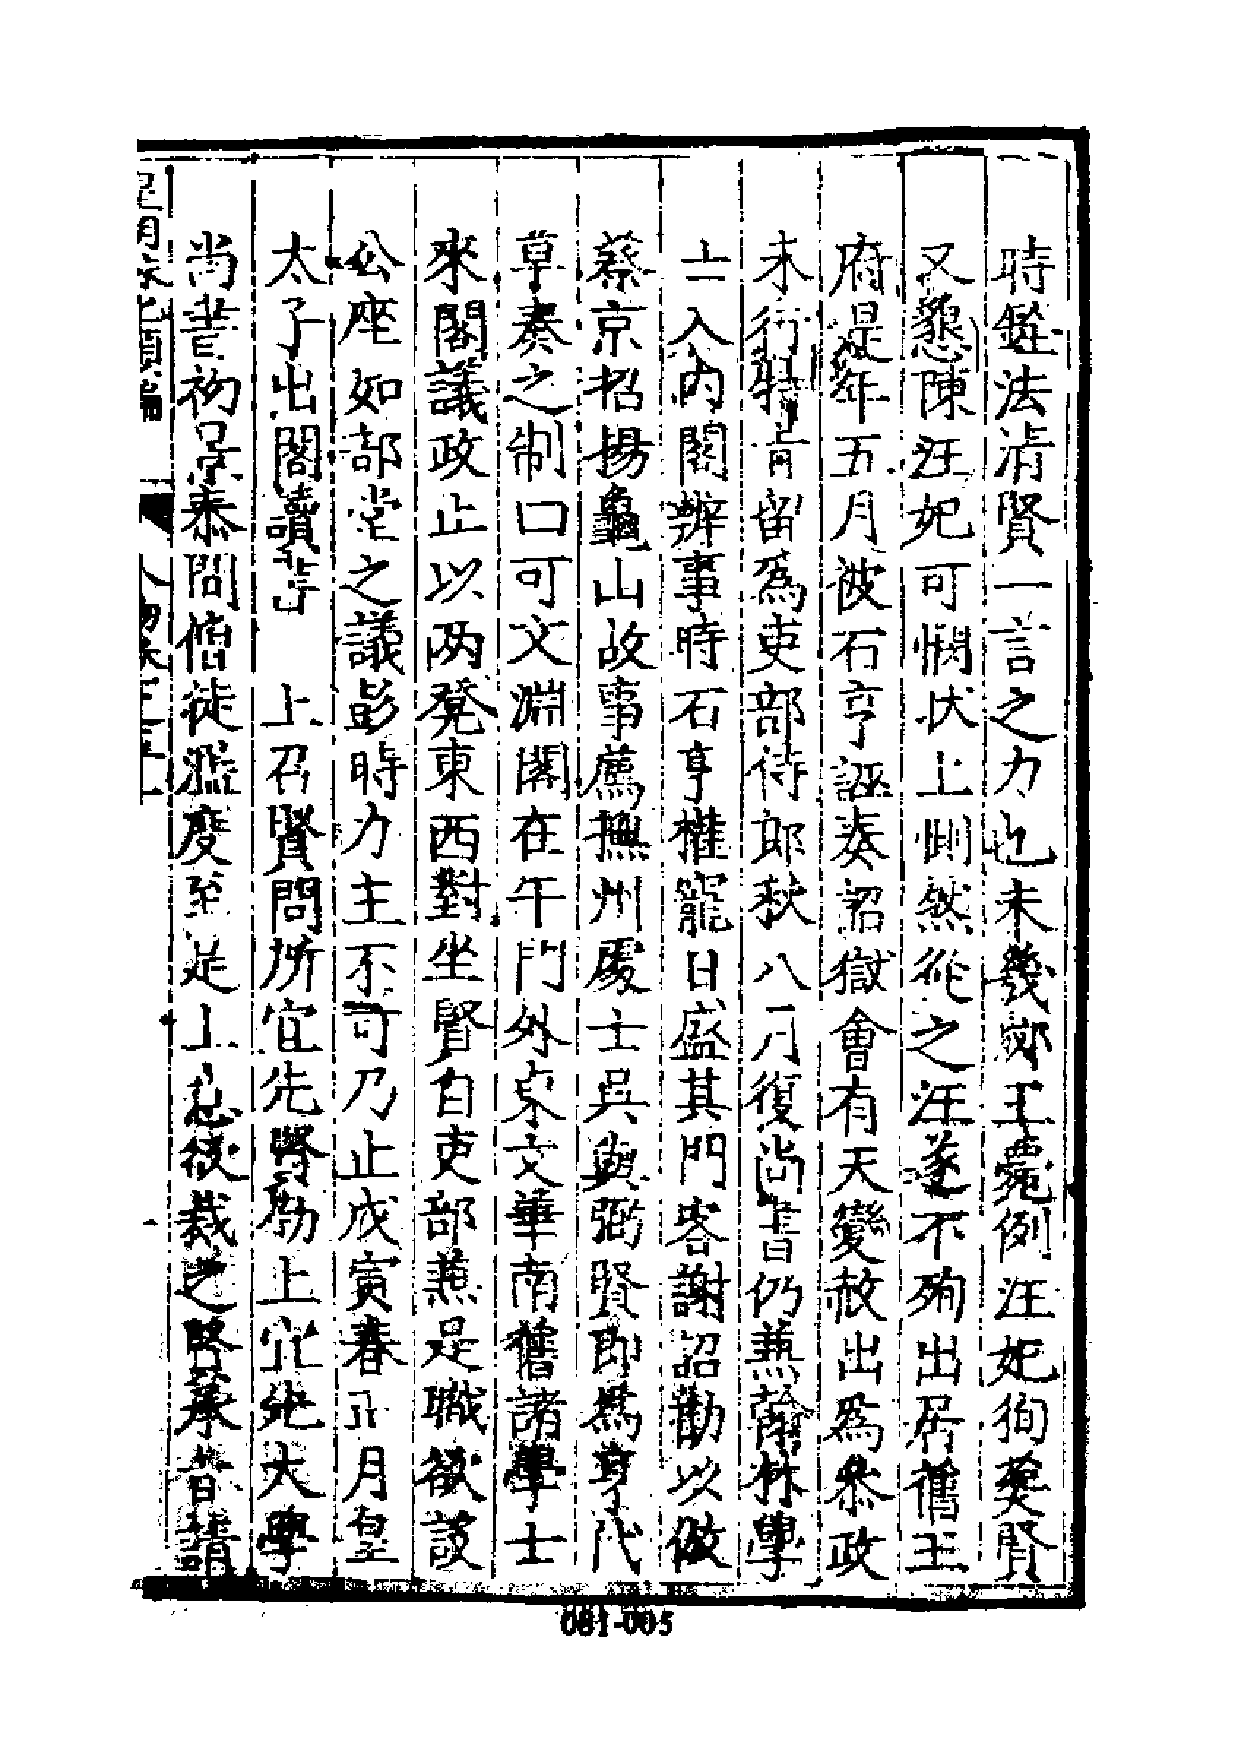 時銓法清賢一言之力也未幾郕王薨例汪妃徇葬賢
又懇陳汪妃可憫狀上惻然從之汪遂不殉出居舊王
府是年五月被石亨誣奏詔獄會有天變赦出爲叅政
未行特肯留爲吏部侍郎秋八月復尚書仍兼翰林學
士入內閣辦事時石亨權寵日盛其門客謝詔勸以倣
蔡京招楊龜山故事薦撫州處士吳與弼賢即爲亨代
草奏之制口可文淵閣在午門外東文華南舊諸學士
來閣議政止以两凳東西對坐賢自吏部兼是職欲設
公座如部堂之議彭時力主不可乃止成寅春正月皇
太子出閣讀書　上召賢問所宜先賢勸上宜先大學
尚書初景泰間僧徒濫度至是上忌後裁之賢承旨請
皇明永化類編　人物卷三十二
081-005